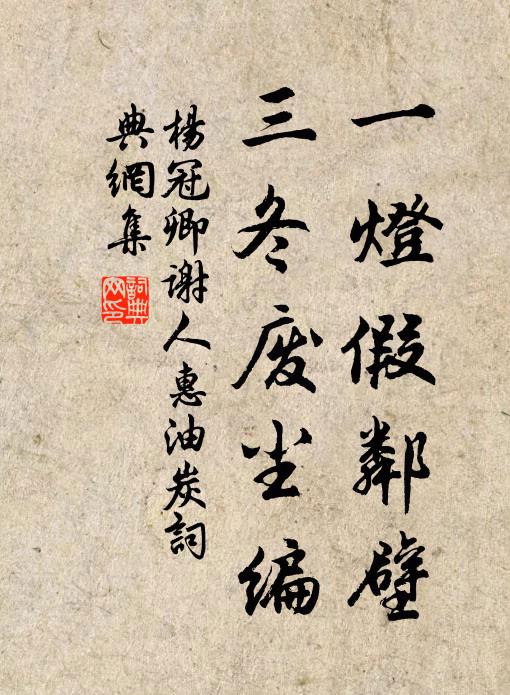 一燈假鄰壁
三冬废尘编
楊冠卿謝人惠油炭詞
典網集
詞典
网印